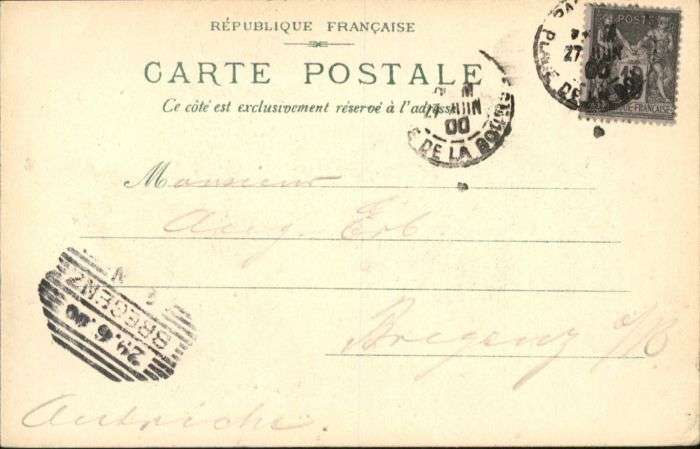 RÉPUBLIQUE FRANÇAISE
CARTE POSTALE
Ce côté est exclusivement réservé à l'adresse
POSTES
10
FRANÇAISE
PLACE DE LA
27 JUIN
00
27 JUIN
00
E DE LA BOURSE
Monsieur
Aug. Erb.
Bregenz a/B
29.6.00
BREGENZ
Autriche.